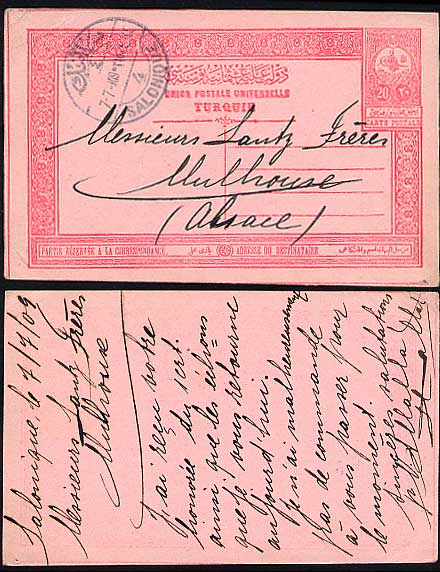 دولت عليه عثمانيه پوستەسى
UNION POSTALE UNIVERSELLE
TURQUIE
20 ٢٠
CARTE POSTALE
SALONIQUE
4
7-7-09
Messieurs Lantz Frères
Mulhouse
(Alsace)
PARTIE RÉSERVÉE A LA CORRESPONDANCE
ADRESSE DU DESTINATAIRE
Salonique le 7/7/09
Messieurs Lantz Frères
Mulhouse
J'ai reçu votre
honorée du 1er ct.
ainsi que les échons
que je vous retourne
aujourd'hui.
Je n'ai malheureusement
pas de commande
à vous passer pour
le moment.
Sincères salutations